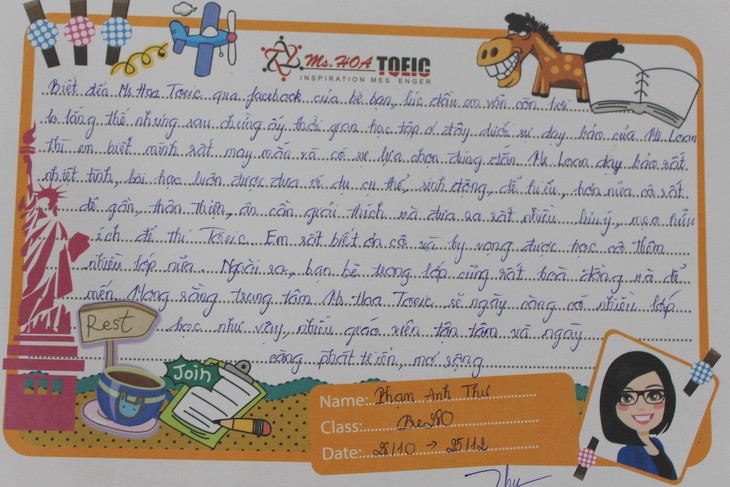 Ms. HOA TOEIC
INSPIRATION MES ENGER
Biết đến Ms Hoa Toeic qua facebook của bè bạn, lúc đầu em vốn còn hơi
lo lắng thế nhưng sau chừng ấy thời gian học tập ở đây dưới sự dạy bảo của Ms Loan
thì em biết mình rất may mắn và có sự lựa chọn đúng đắn. Ms Loan dạy bảo rất
nhiệt tình, bài học luôn được đưa ví dụ cụ thể, sinh động, dễ hiểu, hơn nữa cô rất
dễ gần, thân thiện, ân cần giải thích và đưa ra rất nhiều lưu ý, mẹo hữu
ích để thi Toeic. Em rất biết ơn cô và hy vọng được học cô thêm
nhiều lớp nữa. Ngoài ra, bạn bè trong lớp cũng rất hoà đồng và dễ
mến. Mong rằng trung tâm Ms Hoa Toeic sẽ ngày càng có nhiều lớp
Rest
học như vậy, nhiều giáo viên tận tâm và ngày
càng phát triển, mở rộng
Join
Name: Phạm Anh Thư
Class: Pre280
Date: 28/10 → 25/12
Thu